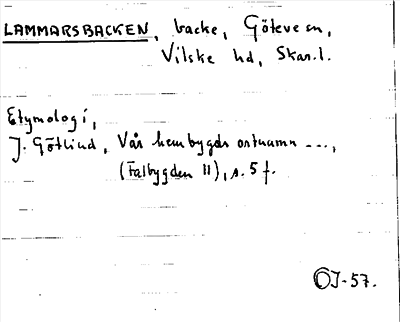 LAMMARSBACKEN, backe, Göteve sn,
Vilske hd, Skar.l.
Etymologi,
J. Götlind, Vår hembygds ortnamn ---,
(Falbygden II), s. 5 f.
OJ-57.